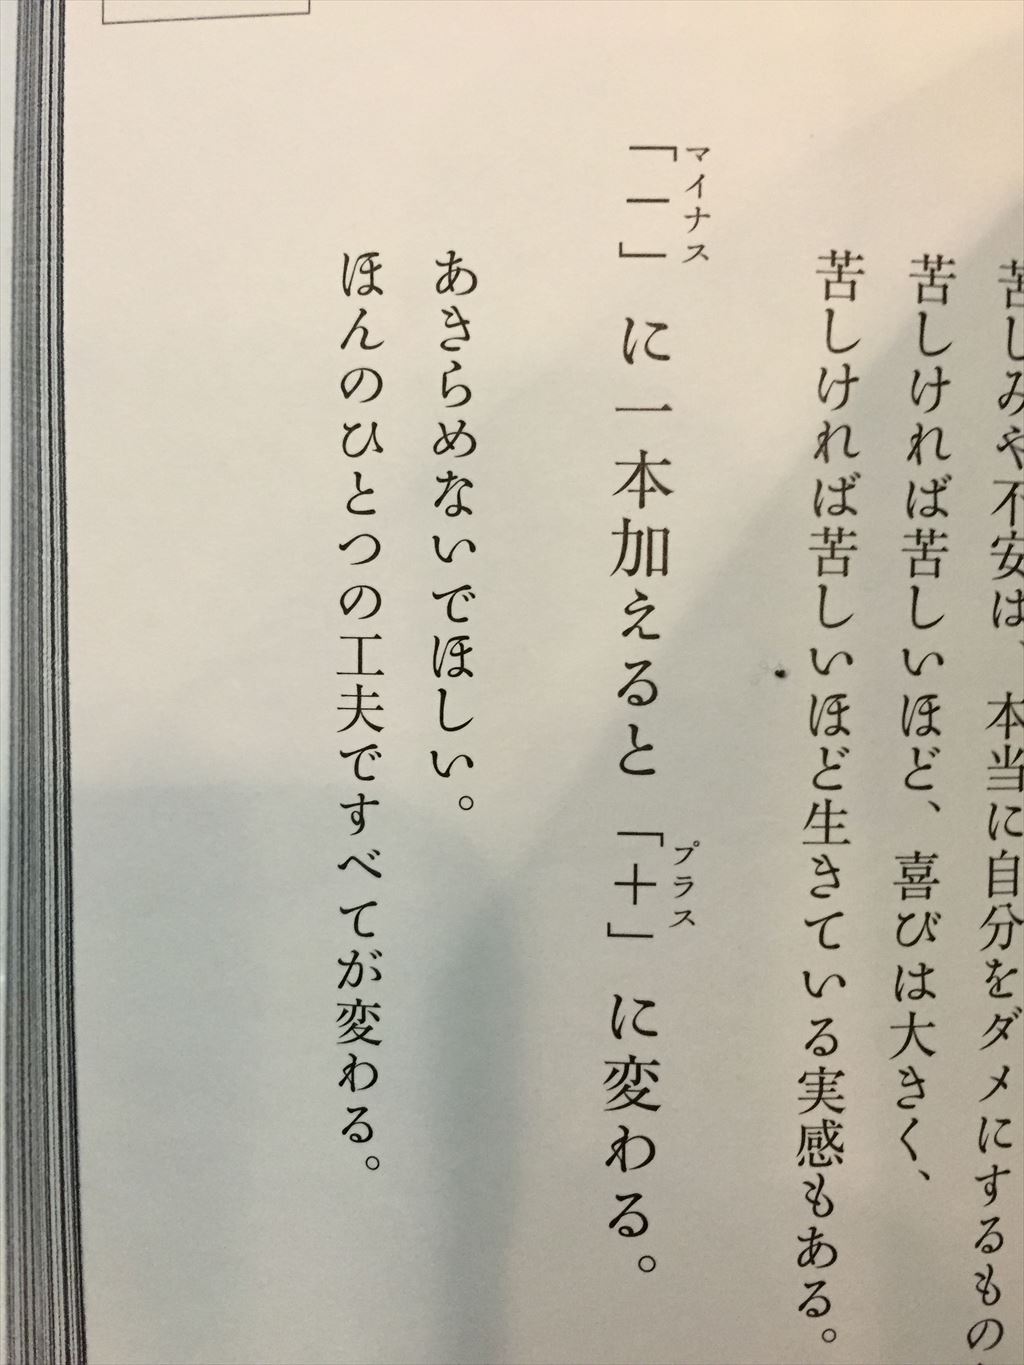 苦しみや不安は、本当に自分をダメにするもの
苦しければ苦しいほど、喜びは大きく、
苦しければ苦しいほど生きている実感もある。
「−」に一本加えると「＋」に変わる。
マイナス
プラス
あきらめないでほしい。
ほんのひとつの工夫ですべてが変わる。